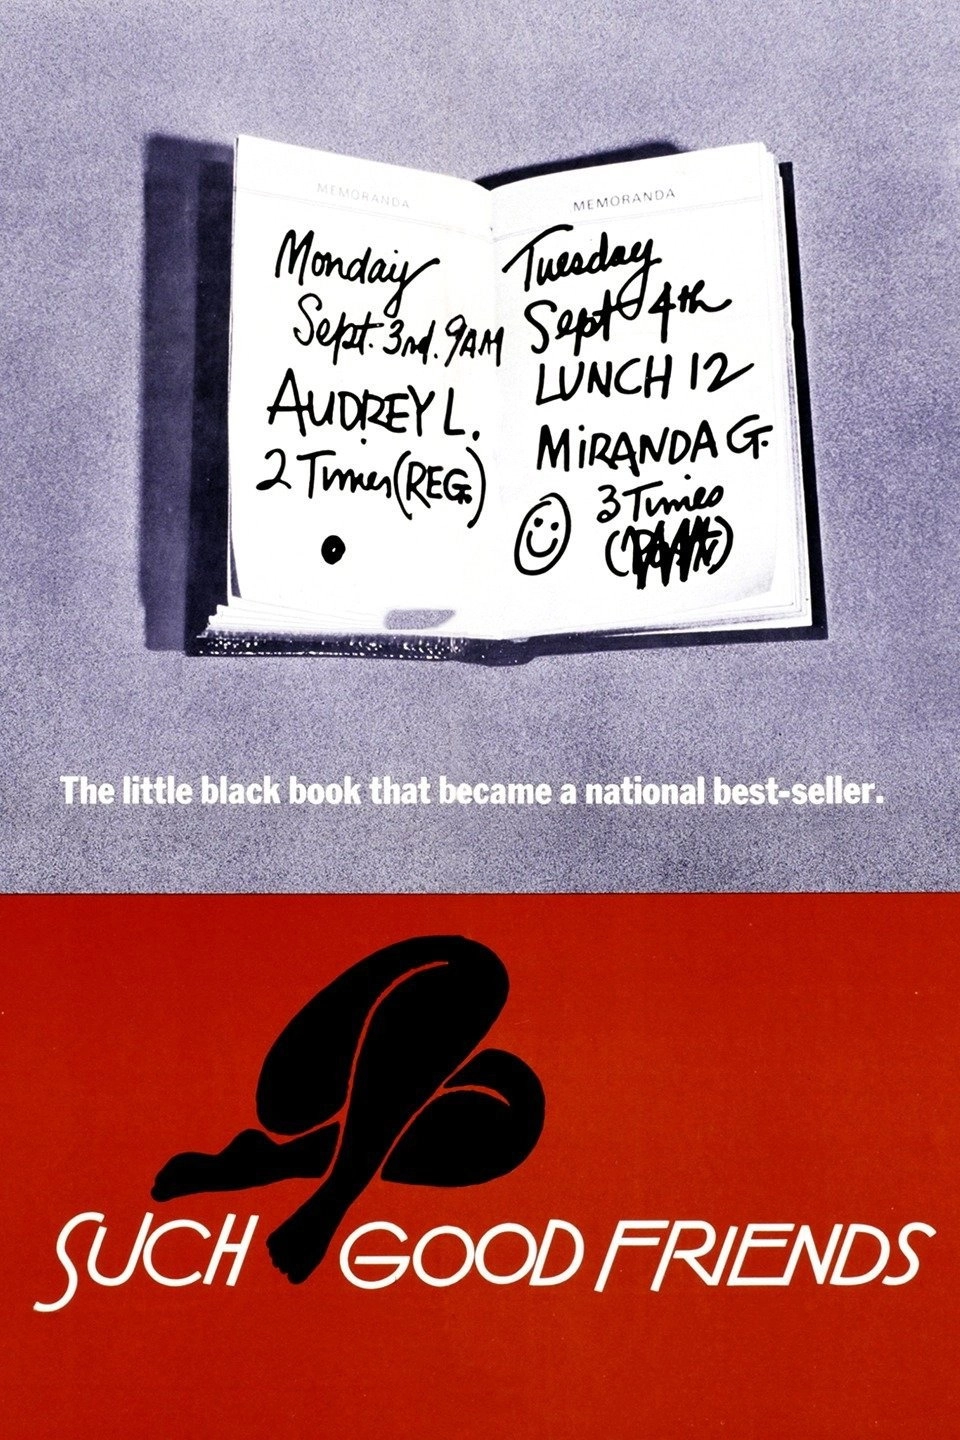 MEMORANDA
Monday
Sept. 3rd. 9AM
AUDREY L.
2 Times (REG.)
MEMORANDA
Tuesday
Sept 4th
LUNCH 12
MiRANDA G.
3 Times
The little black book that became a national best-seller.
SUCH GOOD FRIENDS